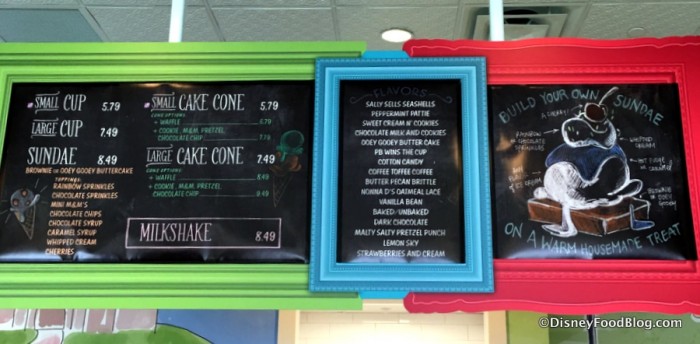 SMALL CUP 5.79
LARGE CUP 7.49
SUNDAE 8.49
BROWNIE OR OOEY GOOEY BUTTERCAKE
TOPPINGS:
RAINBOW SPRINKLES
CHOCOLATE SPRINKLES
MINI M&M'S
CHOCOLATE CHIPS
CHOCOLATE SYRUP
CARAMEL SYRUP
WHIPPED CREAM
CHERRIES
SMALL CAKE CONE 5.79
CONE OPTIONS:
+ WAFFLE 6.79
+ COOKIE, M&M, PRETZEL
CHOCOLATE CHIP 7.19
LARGE CAKE CONE 7.49
CONE OPTIONS:
+ WAFFLE 8.49
+ COOKIE, M&M, PRETZEL
CHOCOLATE CHIP 8.89
MILKSHAKE 8.49
FLAVORS
SALLY SELLS SEASHELLS
PEPPERMINT PATTIE
SWEET CREAM N' COOKIES
CHOCOLATE MILK AND COOKIES
OOEY GOOEY BUTTER CAKE
PB WINS THE CUP
COTTON CANDY
COFFEE TOFFEE COFFEE
BUTTER PECAN BRITTLE
NONNA D'S OATMEAL LACE
VANILLA BEAN
BAKED/UNBAKED
DARK CHOCOLATE
MALTY SALTY PRETZEL PUNCH
LEMON SKY
STRAWBERRIES AND CREAM
BUILD YOUR OWN SUNDAE
A CHERRY!
RAINBOW
OR CHOCOLATE
SPRINKLES
WHIPPED
CREAM
HOT FUDGE
OR CARAMEL
OF ICE CREAM
BROWNIE
OR OOEY
GOOEY
ON A WARM HOUSEMADE TREAT
©DisneyFoodBlog.com